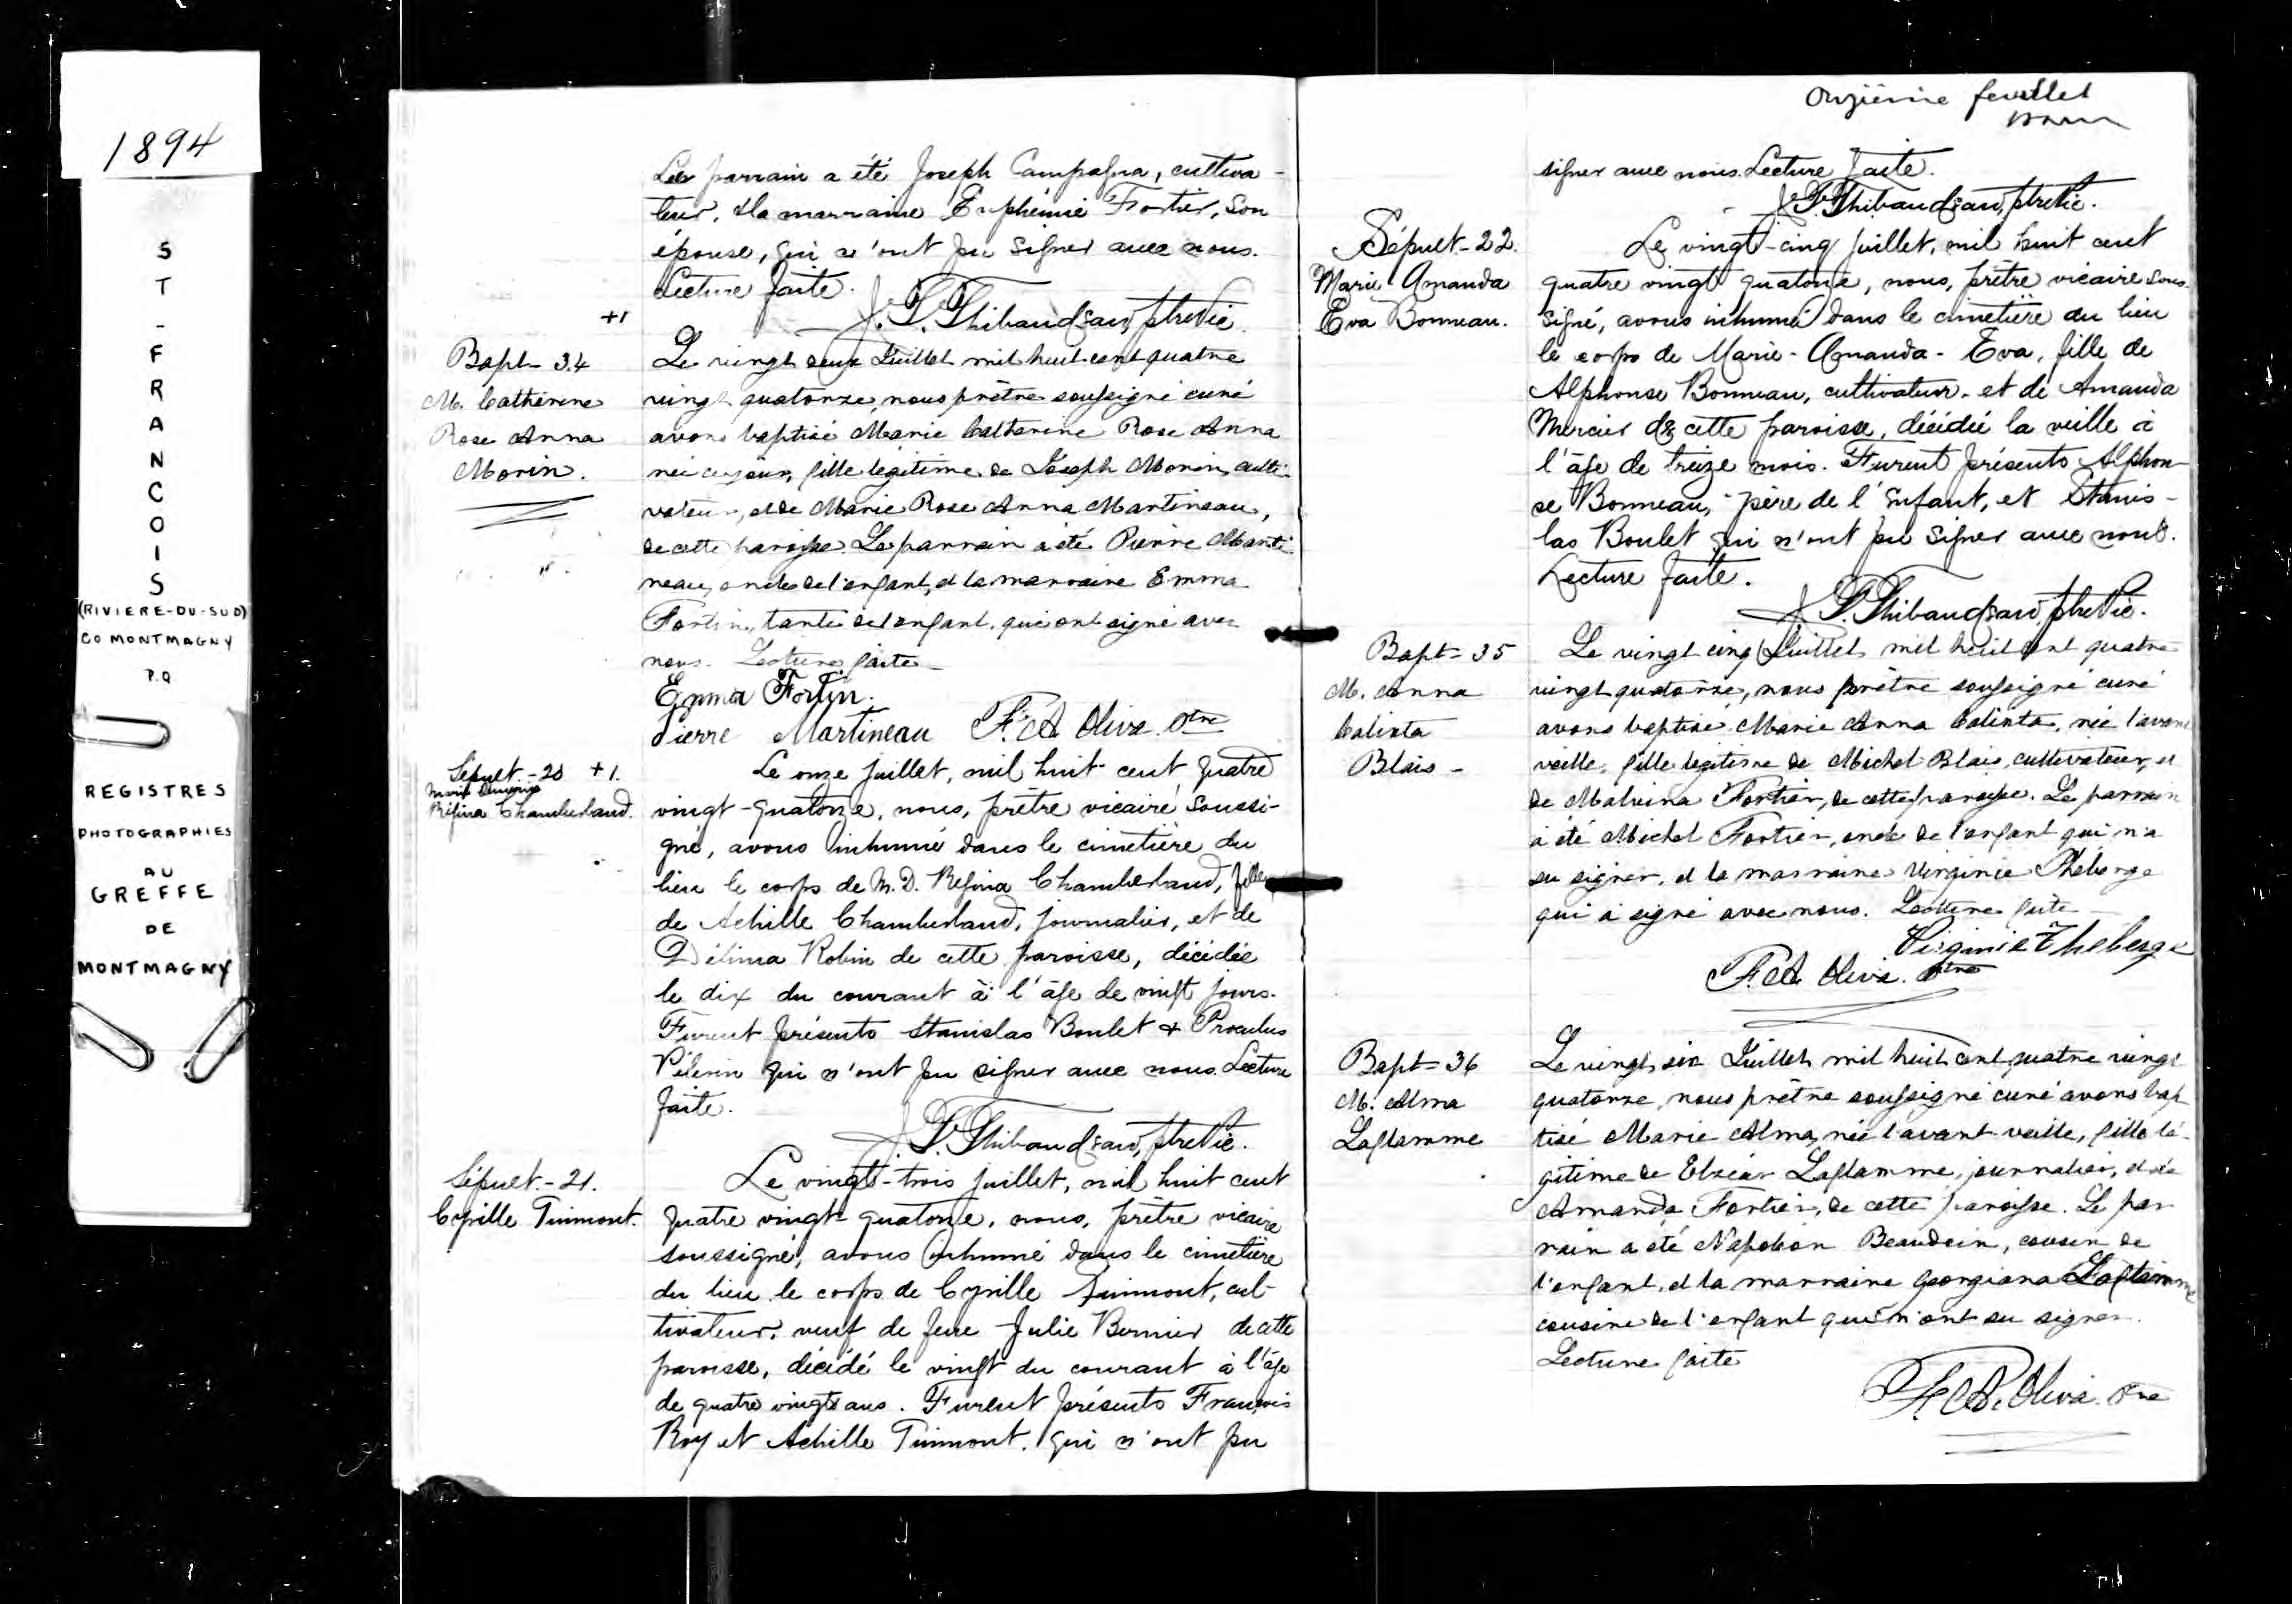 1894
S
T
-
F
R
A
N
C
O
I
S
(RIVIERE-DU-SUD)
CO MONTMAGNY
P.Q
REGISTRES
PHOTOGRAPHIES
AU
GREFFE
DE
MONTMAGNY
Le parrain a été Joseph Campagna, cultiva-
teur, & la marraine Euphémie Fortier, son
épouse, qui n'ont pu signer avec nous.
Lecture faite.
J. S. Thibaudeau, ptre Vic.
+1
Bapt- 34
M. Catherine
Rose Anna
Morin.
Le vingt deux Juillet mil huit cent quatre
vingt quatorze, nous prêtre soussigné curé
avons baptisé Marie Catherine Rose Anna
née ce jour, fille légitime de Joseph Morin, culti-
vateur, et de Marie Rose Anna Martineau,
de cette paroisse. Le parrain a été Pierre Marti-
neau, oncle de l'enfant, et la marraine Emma
Fortin, tante de l'enfant, qui ont signé avec
nous. Lecture faite
Emma Fortin.
Pierre Martineau F. A Oliva Ptre
Sépult.-20 +1.
Régina Chamberland.
Le onze Juillet, mil huit cent quatre
vingt-quatorze, nous, prêtre vicaire soussi-
gné, avons inhumé dans le cimetière du
lieu le corps de M. D. Régina Chamberland, fille
de Achille Chamberland, journalier, et de
Délima Robin de cette paroisse, décédée
le dix du courant à l'âge de vingt jours.
Furent présents Stanislas Boulet & Proculus
Pélerin qui n'ont pu signer avec nous. Lecture
faite.
J. S. Thibaudeau, ptre Vic.
Sépult.-21.
Cyrille Tuimont.
Le vingt-trois juillet, mil huit cent
quatre vingt-quatorze, nous, prêtre vicaire
soussigné, avons inhumé dans le cimetière
du lieu le corps de Cyrille Tuimont, cul-
tivateur, veuf de feue Julie Bernier de cette
paroisse, décédé le vingt du courant à l'âge
de quatre vingts ans. Furent présents François
Roy et Achille Tuimont, qui n'ont pu
Onzième feuillet
signer avec nous. Lecture faite.
J. S. Thibaudeau, ptre Vic.
Sépult-22.
Marie Amanda
Eva Bonneau.
Le vingt-cinq juillet, mil huit cent
quatre vingt quatorze, nous, prêtre vicaire sous-
signé, avons inhumé dans le cimetière du lieu
le corps de Marie-Amanda-Eva, fille de
Alphonse Bonneau, cultivateur, et de Amanda
Mercier de cette paroisse, décédée la veille à
l'âge de treize mois. Furent présents Alphon-
se Bonneau, père de l'enfant, et Stanis-
las Boulet qui n'ont pu signer avec nous.
Lecture faite.
J. S. Thibaudeau, ptre Vic.
Bapt- 35
M. Anna
Calixta
Blais -
Le vingt cinq Juillet mil huit cent quatre
vingt quatorze, nous prêtre soussigné curé
avons baptisé Marie Anna Calixta, née l'avant
veille, fille légitime de Michel Blais, cultivateur, et
de Malvina Fortier, de cette paroisse. Le parrain
a été Michel Fortier, oncle de l'enfant qui n'a
su signer, et la marraine Virginie Théberge
qui a signé avec nous. Lecture faite
Virginie Theberge
F. A Oliva. Ptre
Bapt- 36
M. Alma
Laflamme
Le vingt six Juillet mil huit cent quatre vingt
quatorze, nous prêtre soussigné curé avons bap
tisé Marie Alma, née l'avant veille, fille lé-
gitime de Elzéar Laflamme, journalier, et de
Amanda Fortier, de cette paroisse. Le par
rain a été Napoléon Beaudoin, cousin de
l'enfant, et la marraine Georgiana Laflamme
cousine de l'enfant qui n'ont su signer.
Lecture faite
F. A. Oliva. Ptre